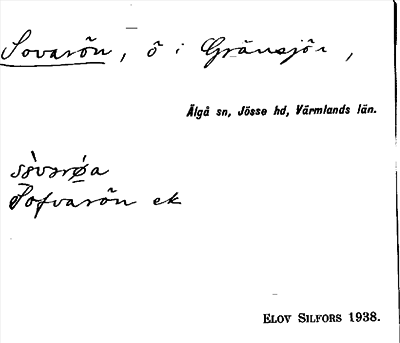 Sovarön, ö i Gränsjön,
Älgå sn, Jösse hd, Värmlands län.
Sofvarön ek
ELOV SILFORS 1938.